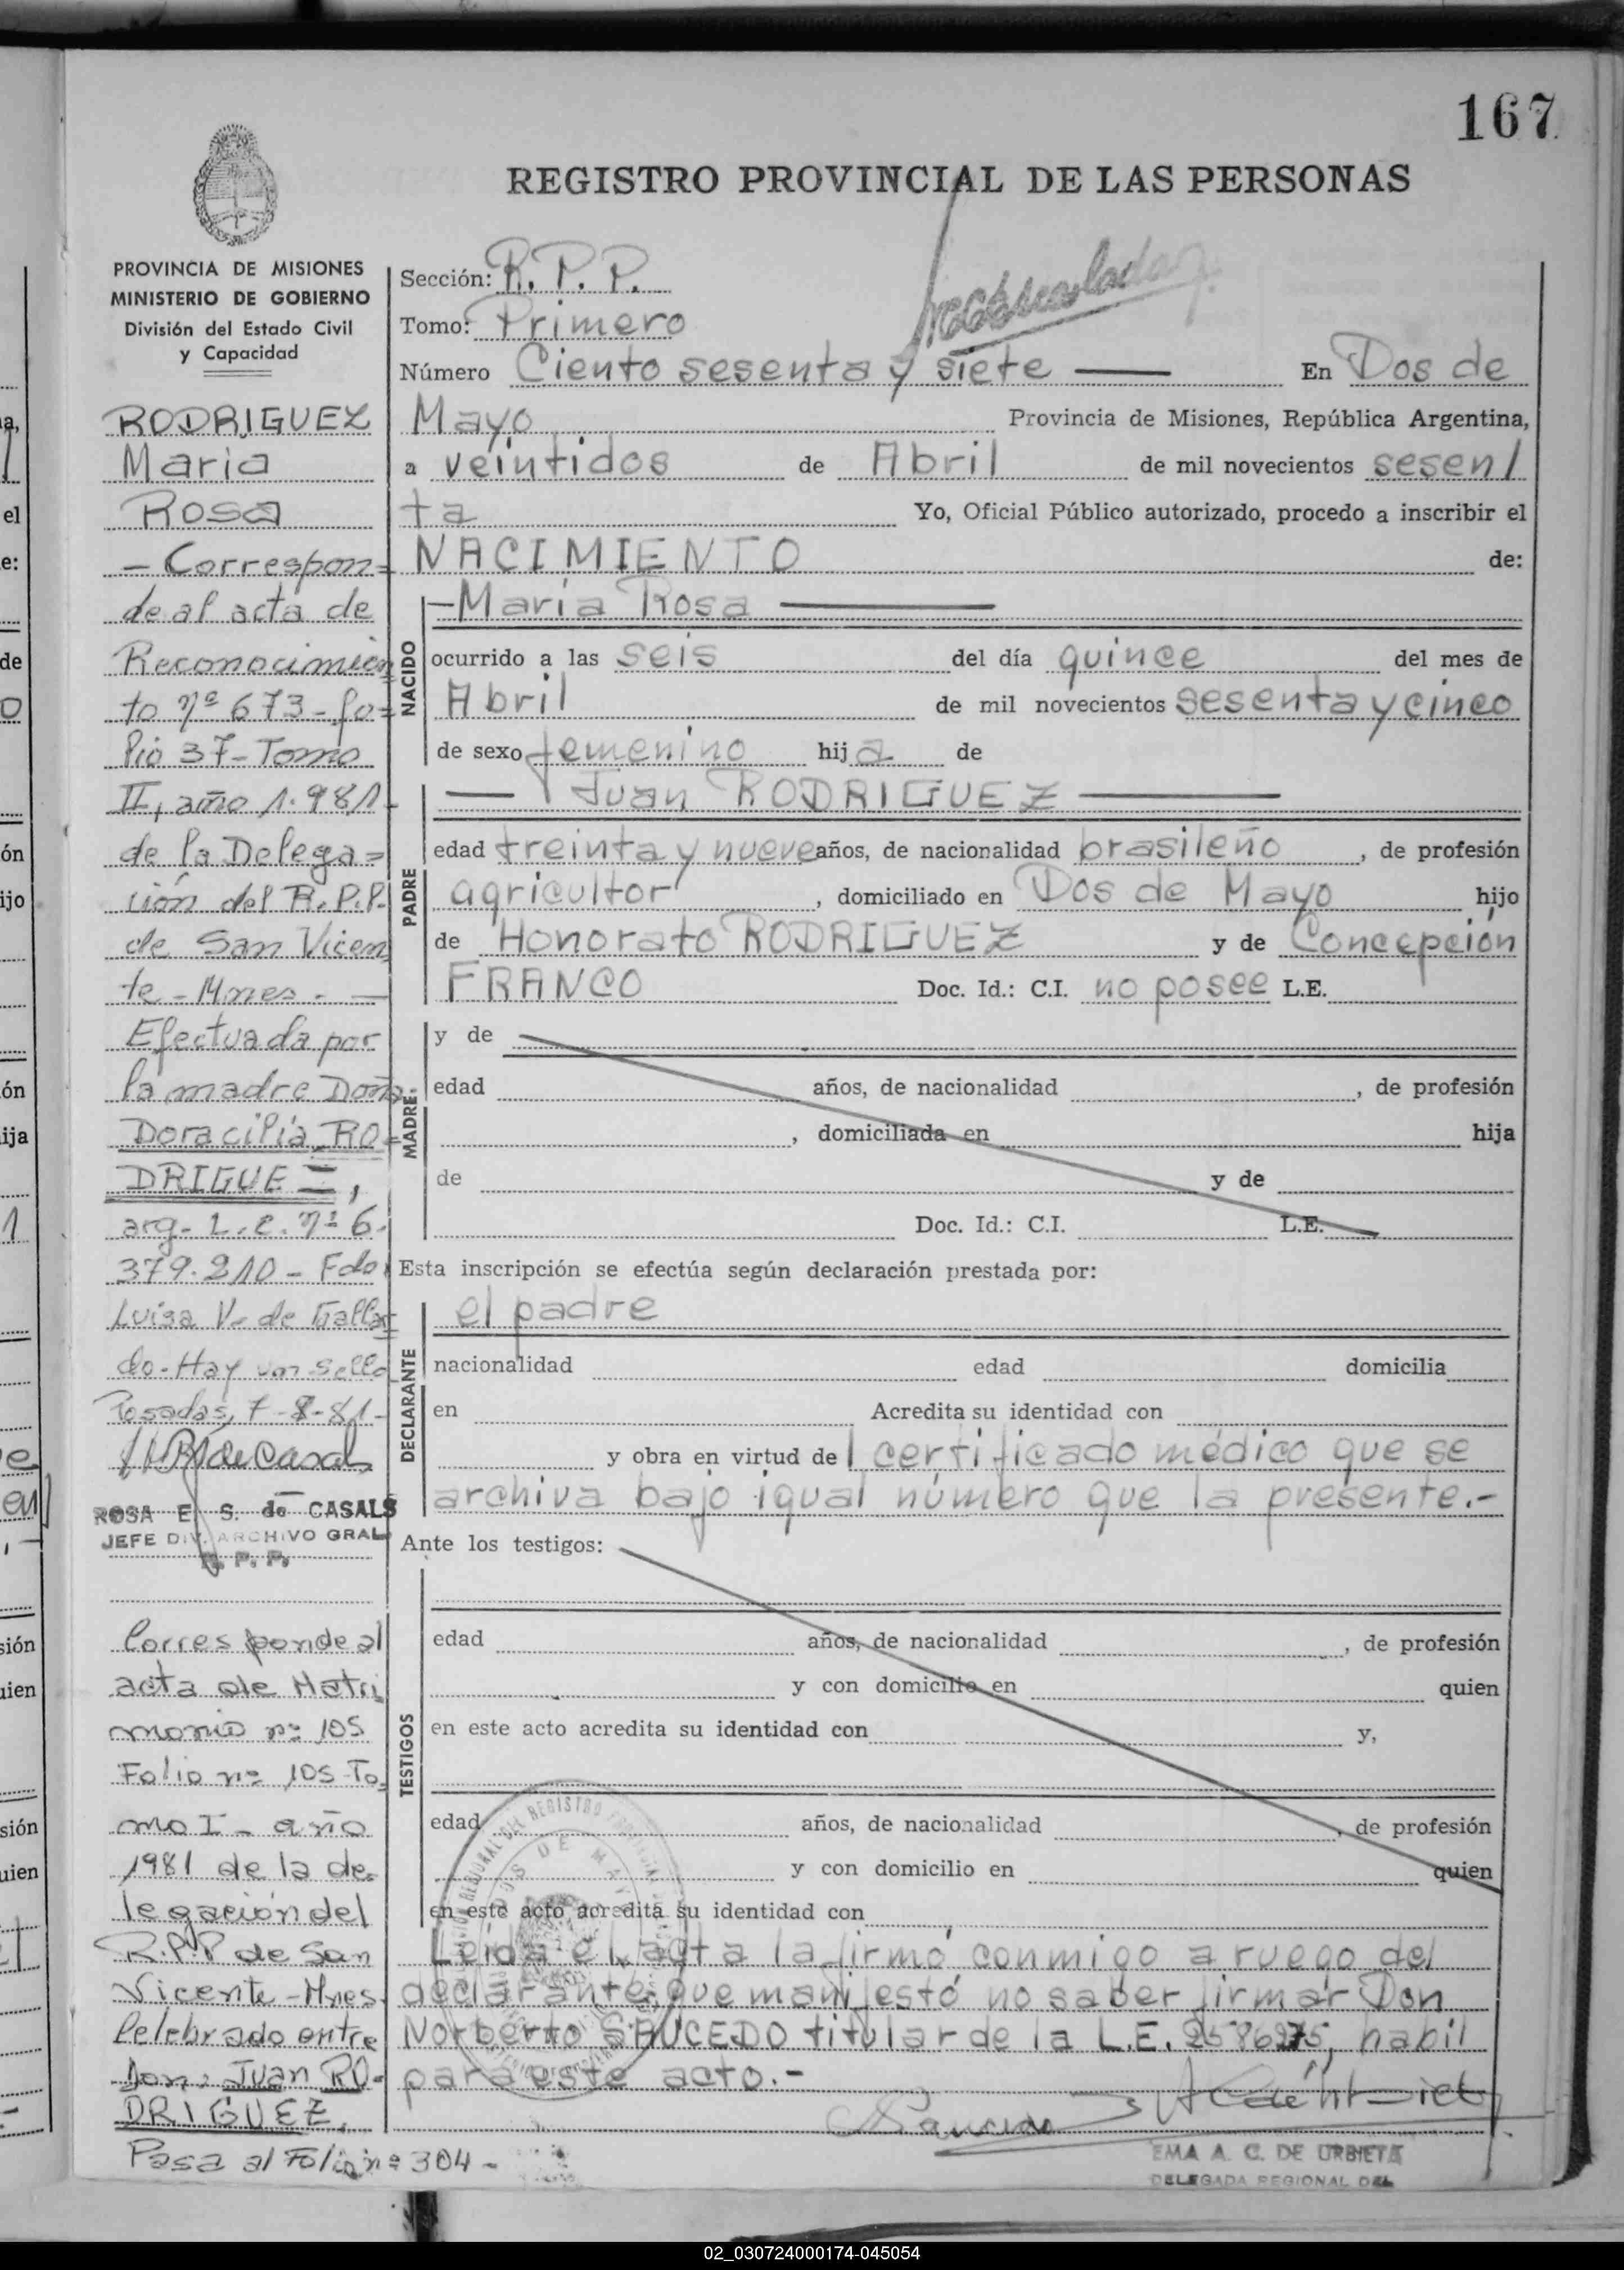 167
REGISTRO PROVINCIAL DE LAS PERSONAS
PROVINCIA DE MISIONES
MINISTERIO DE GOBIERNO
División del Estado Civil
y Capacidad
RODRIGUEZ
Maria
Rosa
- Correspon=
de al acta de
Reconocimien
to nº 673 - fo=
lio 37 - Tomo
II, año 1.981 -
de la Delega=
ción del R.P.P.
de San Vicen
te - Mnes. -
Efectuada por
la madre Doña
Doracilia RO=
DRIGUEZ,
arg. L.C. nº 6.
379.210 - Fdo
Luisa V. de Galla=
do - Hay un sello
Posadas, 7-8-81-
ROSA E. S. de CASALS
JEFE DIV. ARCHIVO GRAL
R. P. P.
Corresponde al
acta de Matri
monio nº 105
Folio nº 105 To=
mo I - año
1981 de la de=
legación del
R.P.P de San
Vicente - Mnes.
Celebrado entre
Don: Juan RO-
DRIGUEZ.
Pasa al Folio nº 304 -
Sección: R. P. P.
Tomo: Primero
Número Ciento sesenta y siete — En Dos de
Mayo Provincia de Misiones, República Argentina,
a veintidos de Abril de mil novecientos sesen/
ta Yo, Oficial Público autorizado, procedo a inscribir el
NACIMIENTO de:
NACIDO
- María Rosa —
ocurrido a las seis del día quince del mes de
Abril de mil novecientos sesenta y cinco
de sexo femenino hija de
PADRE
— Juan RODRIGUEZ —
edad treinta y nueve años, de nacionalidad brasileño, de profesión
agricultor, domiciliado en Dos de Mayo hijo
de Honorato RODRIGUEZ y de Concepción
FRANCO Doc. Id.: C.I. no posee L.E.
MADRE:
y de
edad años, de nacionalidad , de profesión
, domiciliada en hija
de y de
Doc. Id.: C.I. L.E.
Esta inscripción se efectúa según declaración prestada por:
DECLARANTE
el padre
nacionalidad edad domicilia
en Acredita su identidad con
y obra en virtud de l certificado médico que se
archiva bajo igual número que la presente.-
Ante los testigos:
TESTIGOS
edad años, de nacionalidad , de profesión
y con domicilio en quien
en este acto acredita su identidad con y,
edad años, de nacionalidad , de profesión
y con domicilio en quien
en este acto acredita su identidad con
Leída el acta la firmó conmigo a ruego del
declarante, que manifestó no saber firmar Don
Norberto SAUCEDO titular de la L.E. 2586275, habil
para este acto.-
Saucedo
EMA A. C. DE URBIETA
DELEGADA REGIONAL DEL
02_030724000174-045054